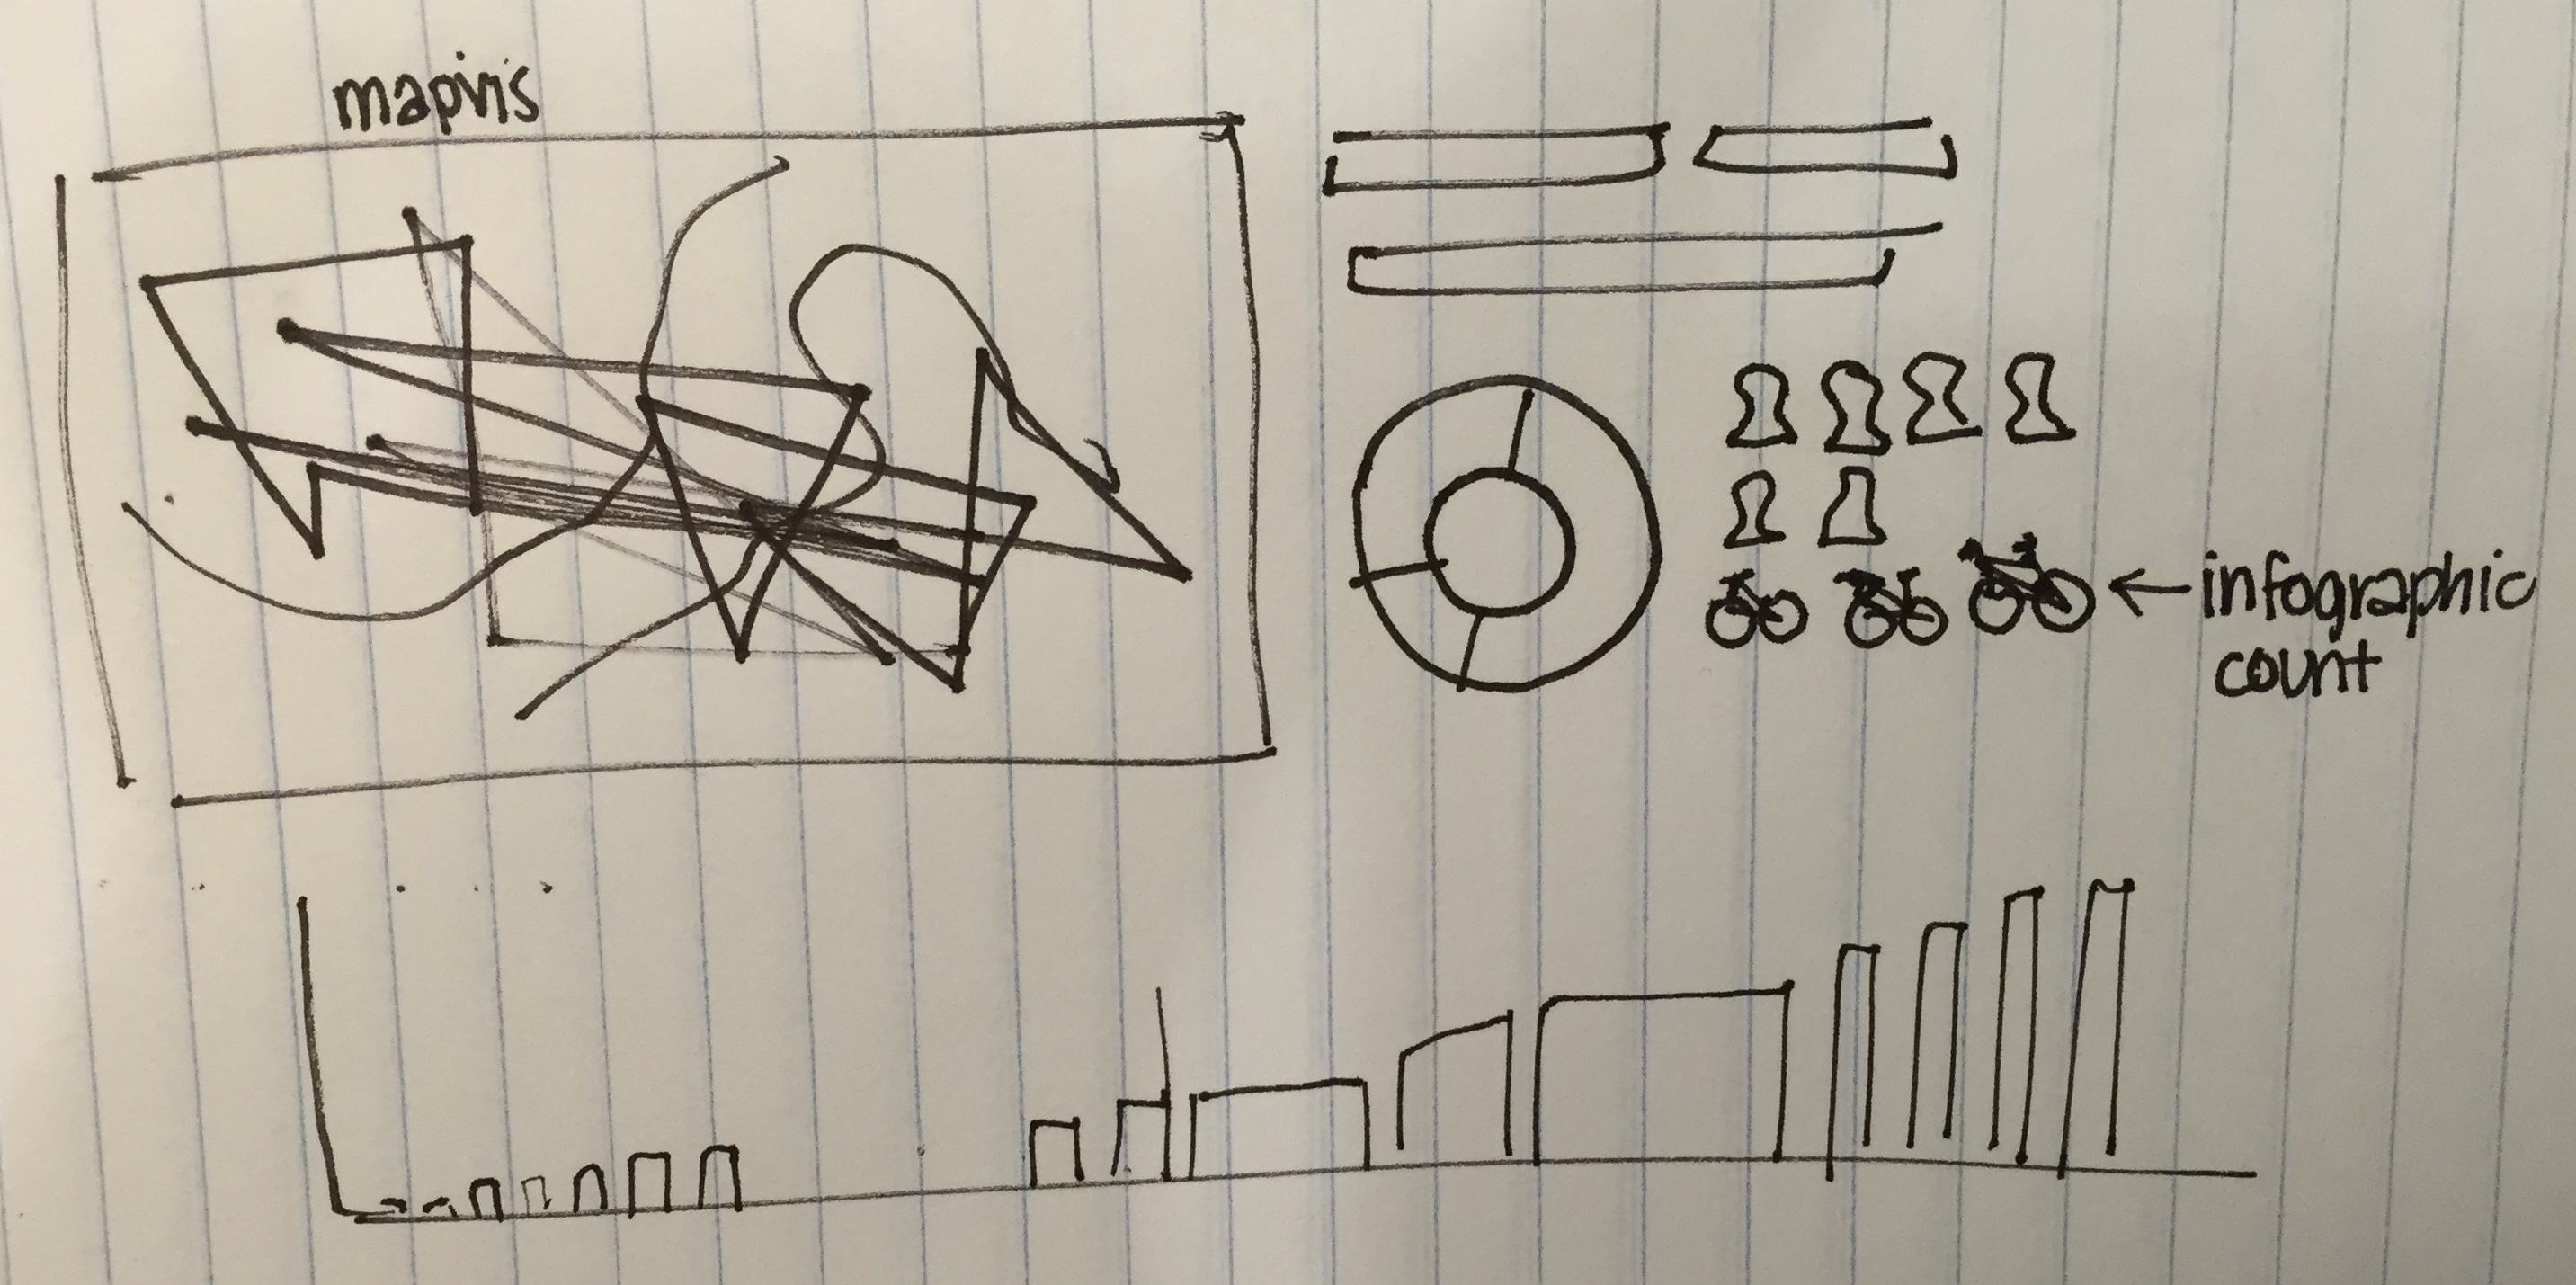 mapvis
infographic
count